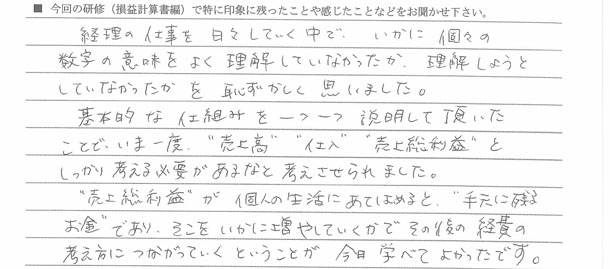 ■ 今回の研修（損益計算書編）で特に印象に残ったことや感じたことなどをお聞かせ下さい。
経理の仕事を日々していく中で、いかに個々の
数字の意味をよく理解していなかったか、理解しようと
していなかったかを恥ずかしく思いました。
基本的な仕組みを一つ一つ説明して頂いた
ことで、いま一度、"売上高" "仕入" "売上総利益" と
しっかり考える必要があるなと考えさせられました。
"売上総利益" が個人の生活にあてはめると、"手元に残る
お金" であり、そこをいかに増やしていくかでその後の経費の
考え方につながっていくということが今日学べてよかったです。